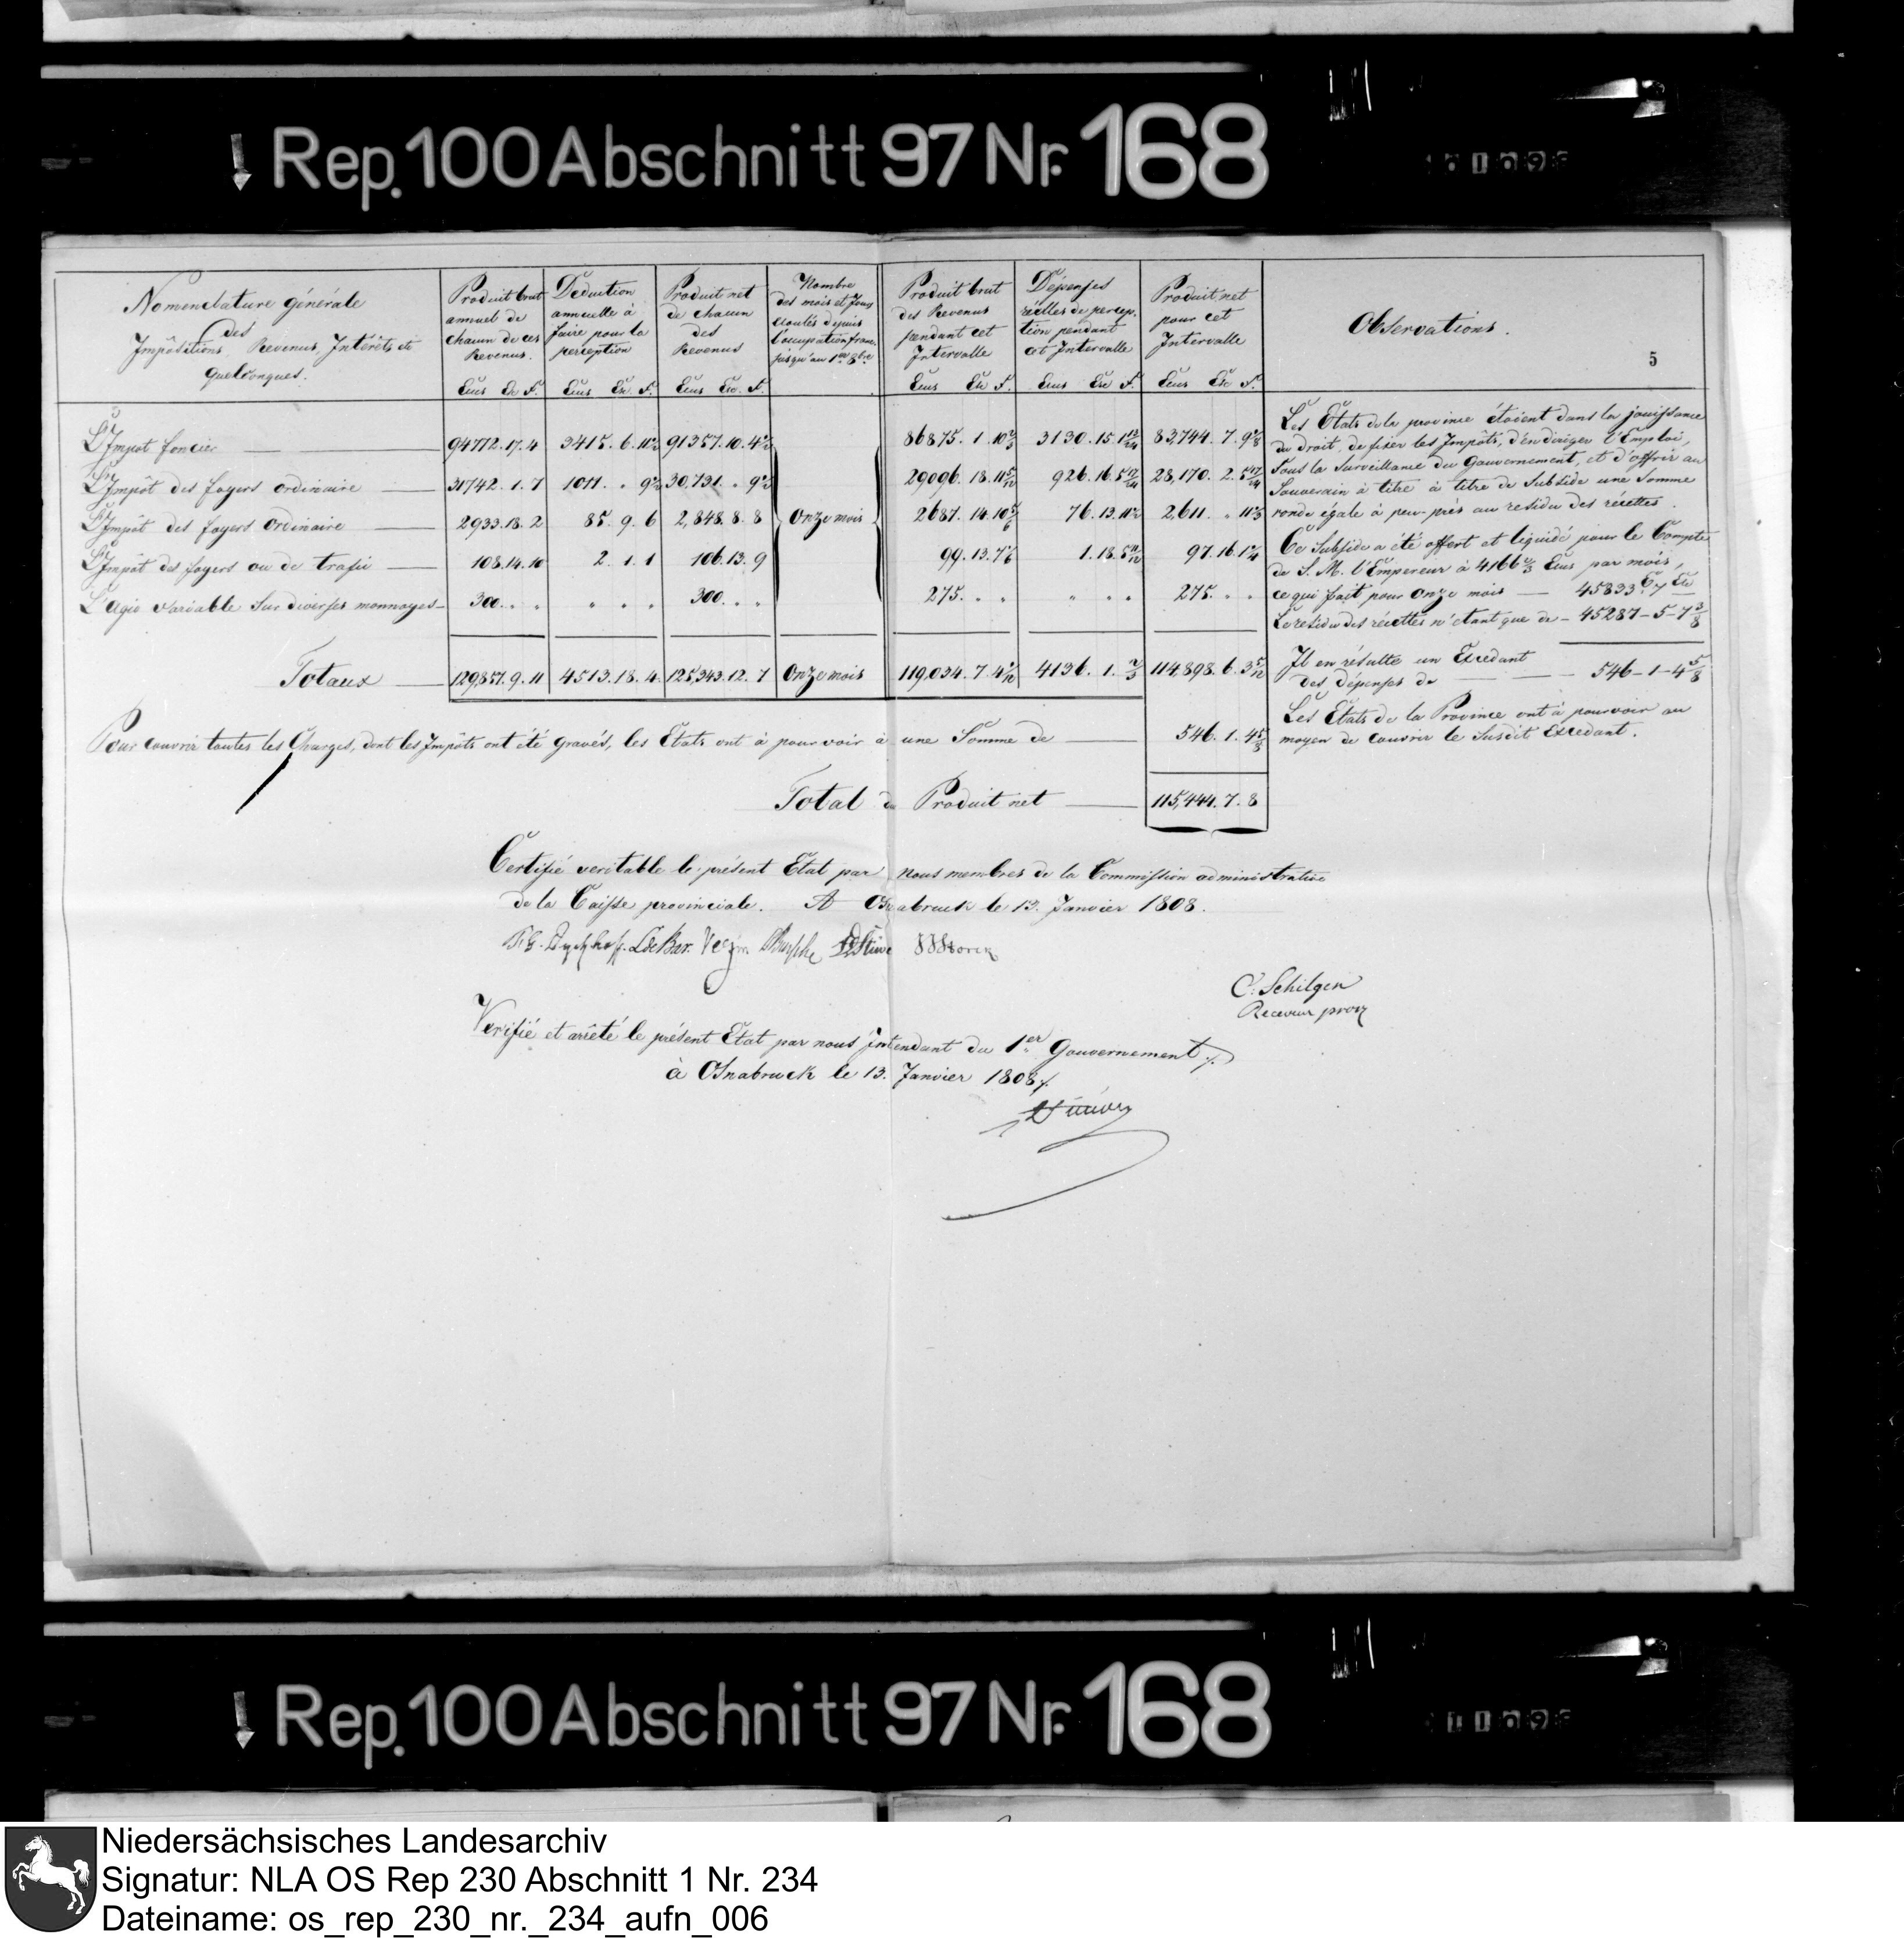 Rep. 100 Abschnitt 97 Nr. 168
Nomenclature générale
des
Impositions, Revenus, Intérêts et
quelconques.
Produit brut
annuel de
chacun de ces
Revenus.
Ecus Es. d.
Deduction
annuelle à
faire pour la
perception
Ecus Es. d.
Produit net
de chacun
des
Revenus
Ecus Es. d.
Nombre
des mois et Jours
écoulés depuis
l'occupation franc.
jusqu'au 1er 8bre
Produit brut
des Revenus
pendant cet
Intervalle
Ecus Es. d.
Dépenses
réelles de percep-
tion pendant
cet Intervalle
Ecus Es. d.
Produit net
pour cet
Intervalle
Ecus Es. d.
Observations.
5
L'Impot foncier 94772.17.4 3415.6.11⅔ 91357.10.4⅓ 86875.1.10⅔ 3130.15. 83,744.7.
L'Impôt des foyers ordinaire 31742.1.7 1011. " 9⅔ 30,731. " 9⅓ 29096.18.11 5/12 926.16.5 17/24 28,170.2.5 17/24
L'Impôt des foyers ordinaire 2933.18.2 85.9.6 2,848.8.8 Onze mois 2687.14.10 5/6 76.13.11 2,611. " 11⅓
L'Impôt des foyers ou de trafic 108.14.10 2.1.1 106.13.9 99.13.7 1/6 1.18.5 11/12 97.16.1¼
L'Agio variable sur diverses monnoyes 300. " " " " " 300. " " 275. " " " " " 275. " "
Totaux 129,857.9.11 4513.18.4 125,343.12.7 Onze mois 119,034.7.4 1/12 4136.1.⅔ 114,898.6.3 5/12
Les Etats de la province étoient dans la jouissance
du droit, de fixer les Impôts, d'en diriger l'Emploi,
sous la surveillance du Gouvernement, et d'offrir au
Souverain à titre à titre de Subside une Somme
ronde égale à peu-près au residu des récettes.
Ce Subside a été offert et liquidé pour le Compte
de S. M. l'Empereur à 4166⅔ Ecus par mois,
ce qui fait pour onze mois — 45833 6 7
Le residu des récettes n'étant que de — 45287 – 5 – 7 3/8
Il en résulte un Excedant
des dépenses de — 546 – 1 – 4 5/8
Les Etats de la Province ont à pourvoir au
moyen de couvrir le susdit Excedant.
Pour couvrir toutes les Charges, dont les Impôts ont été gravés, les Etats ont à pourvoir à une Somme de — 546.1.4 5/8
Total du Produit net — 115,444.7.8
Certifié veritable le présent Etat par nous membres de la Commission administrative
de la Caisse provinciale. A Osnabruck le 13. Janvier 1808.
C. Schilgen
Receveur prov
Verifié et arrêté le présent Etat par nous Intendant du 1er Gouvernement
à Osnabruck le 13. Janvier 1808
Rep. 100 Abschnitt 97 Nr. 168
Niedersächsisches Landesarchiv
Signatur: NLA OS Rep 230 Abschnitt 1 Nr. 234
Dateiname: os_rep_230_nr._234_aufn_006